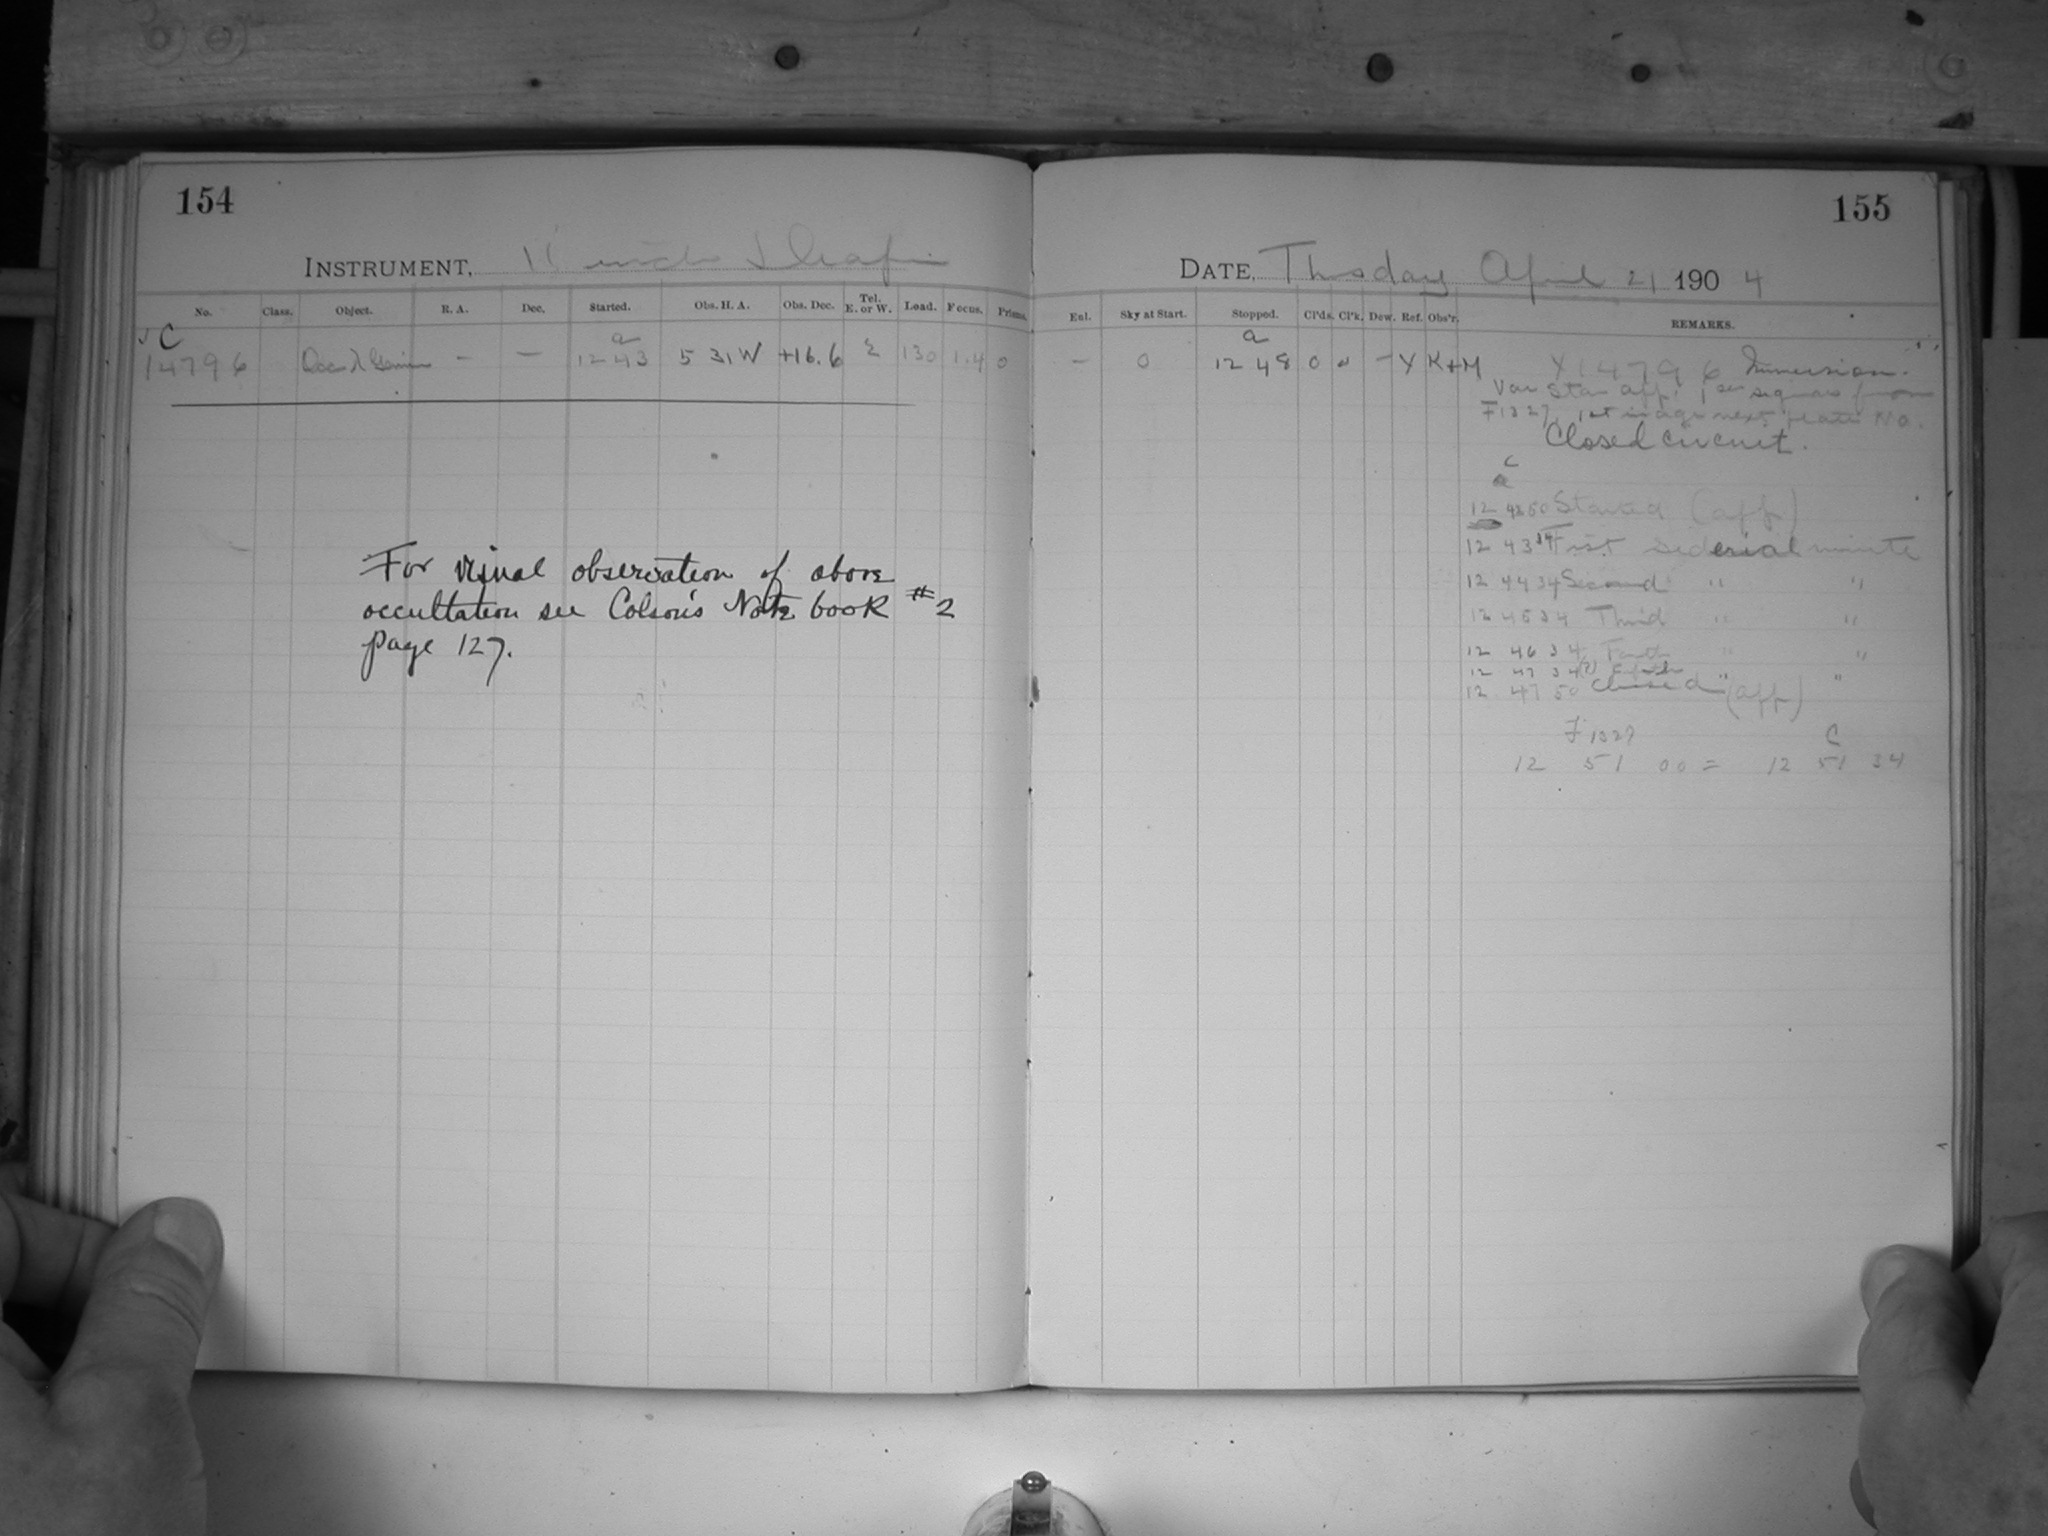 154
155
INSTRUMENT, 11 inch Draper
DATE, Thsday April 21 1904
No. Class. Object. R. A. Dec. Started. Obs. H. A. Obs. Dec. Tel. E. or W. Load. Focus. Prisms.
Enl. Sky at Start. Stopped. Cl'ds. Cl'k. Dew. Ref. Obs'r. REMARKS.
C a
14796 Occ λ Gemin — — 12 43 5 31 W +16.6 E 130 1.4 0
a
— 0 12 48 0 — Y K+M X14796 Immersion.
Var Star app. signals from
F1327, 1st image next plate No.
Closed circuit.
For visual observation of above
occultation see Colson's Note book #2
page 127.
c
12 42 50 Started (app)
12 43 34 First siderial minute
12 44 34 Second " "
12 45 34 Third " "
12 46 34 Fourth " "
12 47 34 (?) Fifth " "
12 47 50 Closed (app)
F1327 C
12 51 00 = 12 51 34